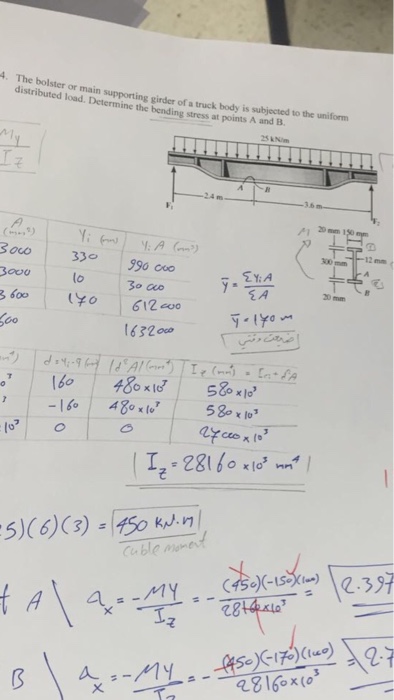 4. The bolster or main supporting girder of a truck body is subjected to the uniform
distributed load. Determine the bending stress at points A and B.
My
Iz
25 kN/m
A B
2.4 m 3.6 m
F₁ F₂
20 mm 150 mm
300 mm 12 mm
A
B
20 mm
A (mm²) Yi (mm) Yi A (mm³)
3000 330 990 000
3000 10 30 000
3600 170 612 000
1632000
ȳ = ΣYiA / ΣA
ȳ = 170 m
160 480 x 10³ 580 x 10³
-160 480 x 10³ 580 x 10³
10³ 0 0 27000 x 10³
Iz = 28160 x 10³ mm⁴
5)(6)(3) = 450 kN.m
A \ = -MY / Iz = - (450)(-150)(100) / = 2.397
B \ = -MY = - (450)(-170)(100) / 28160x10³ = 2.7